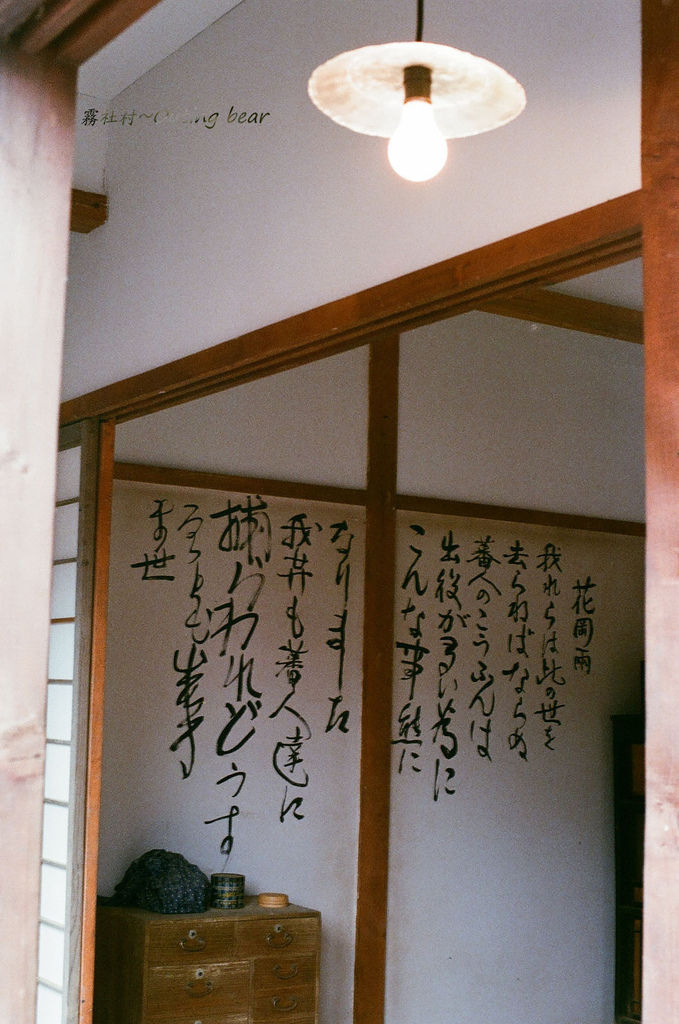 霧社村~ bear
花岡兩
我れらは此の世を
去らねばならぬ
蕃人のこうふんは
出役が多い為に
こんな事態に
なりました
我等も蕃人達に
捕らわれどうす
ることも出来